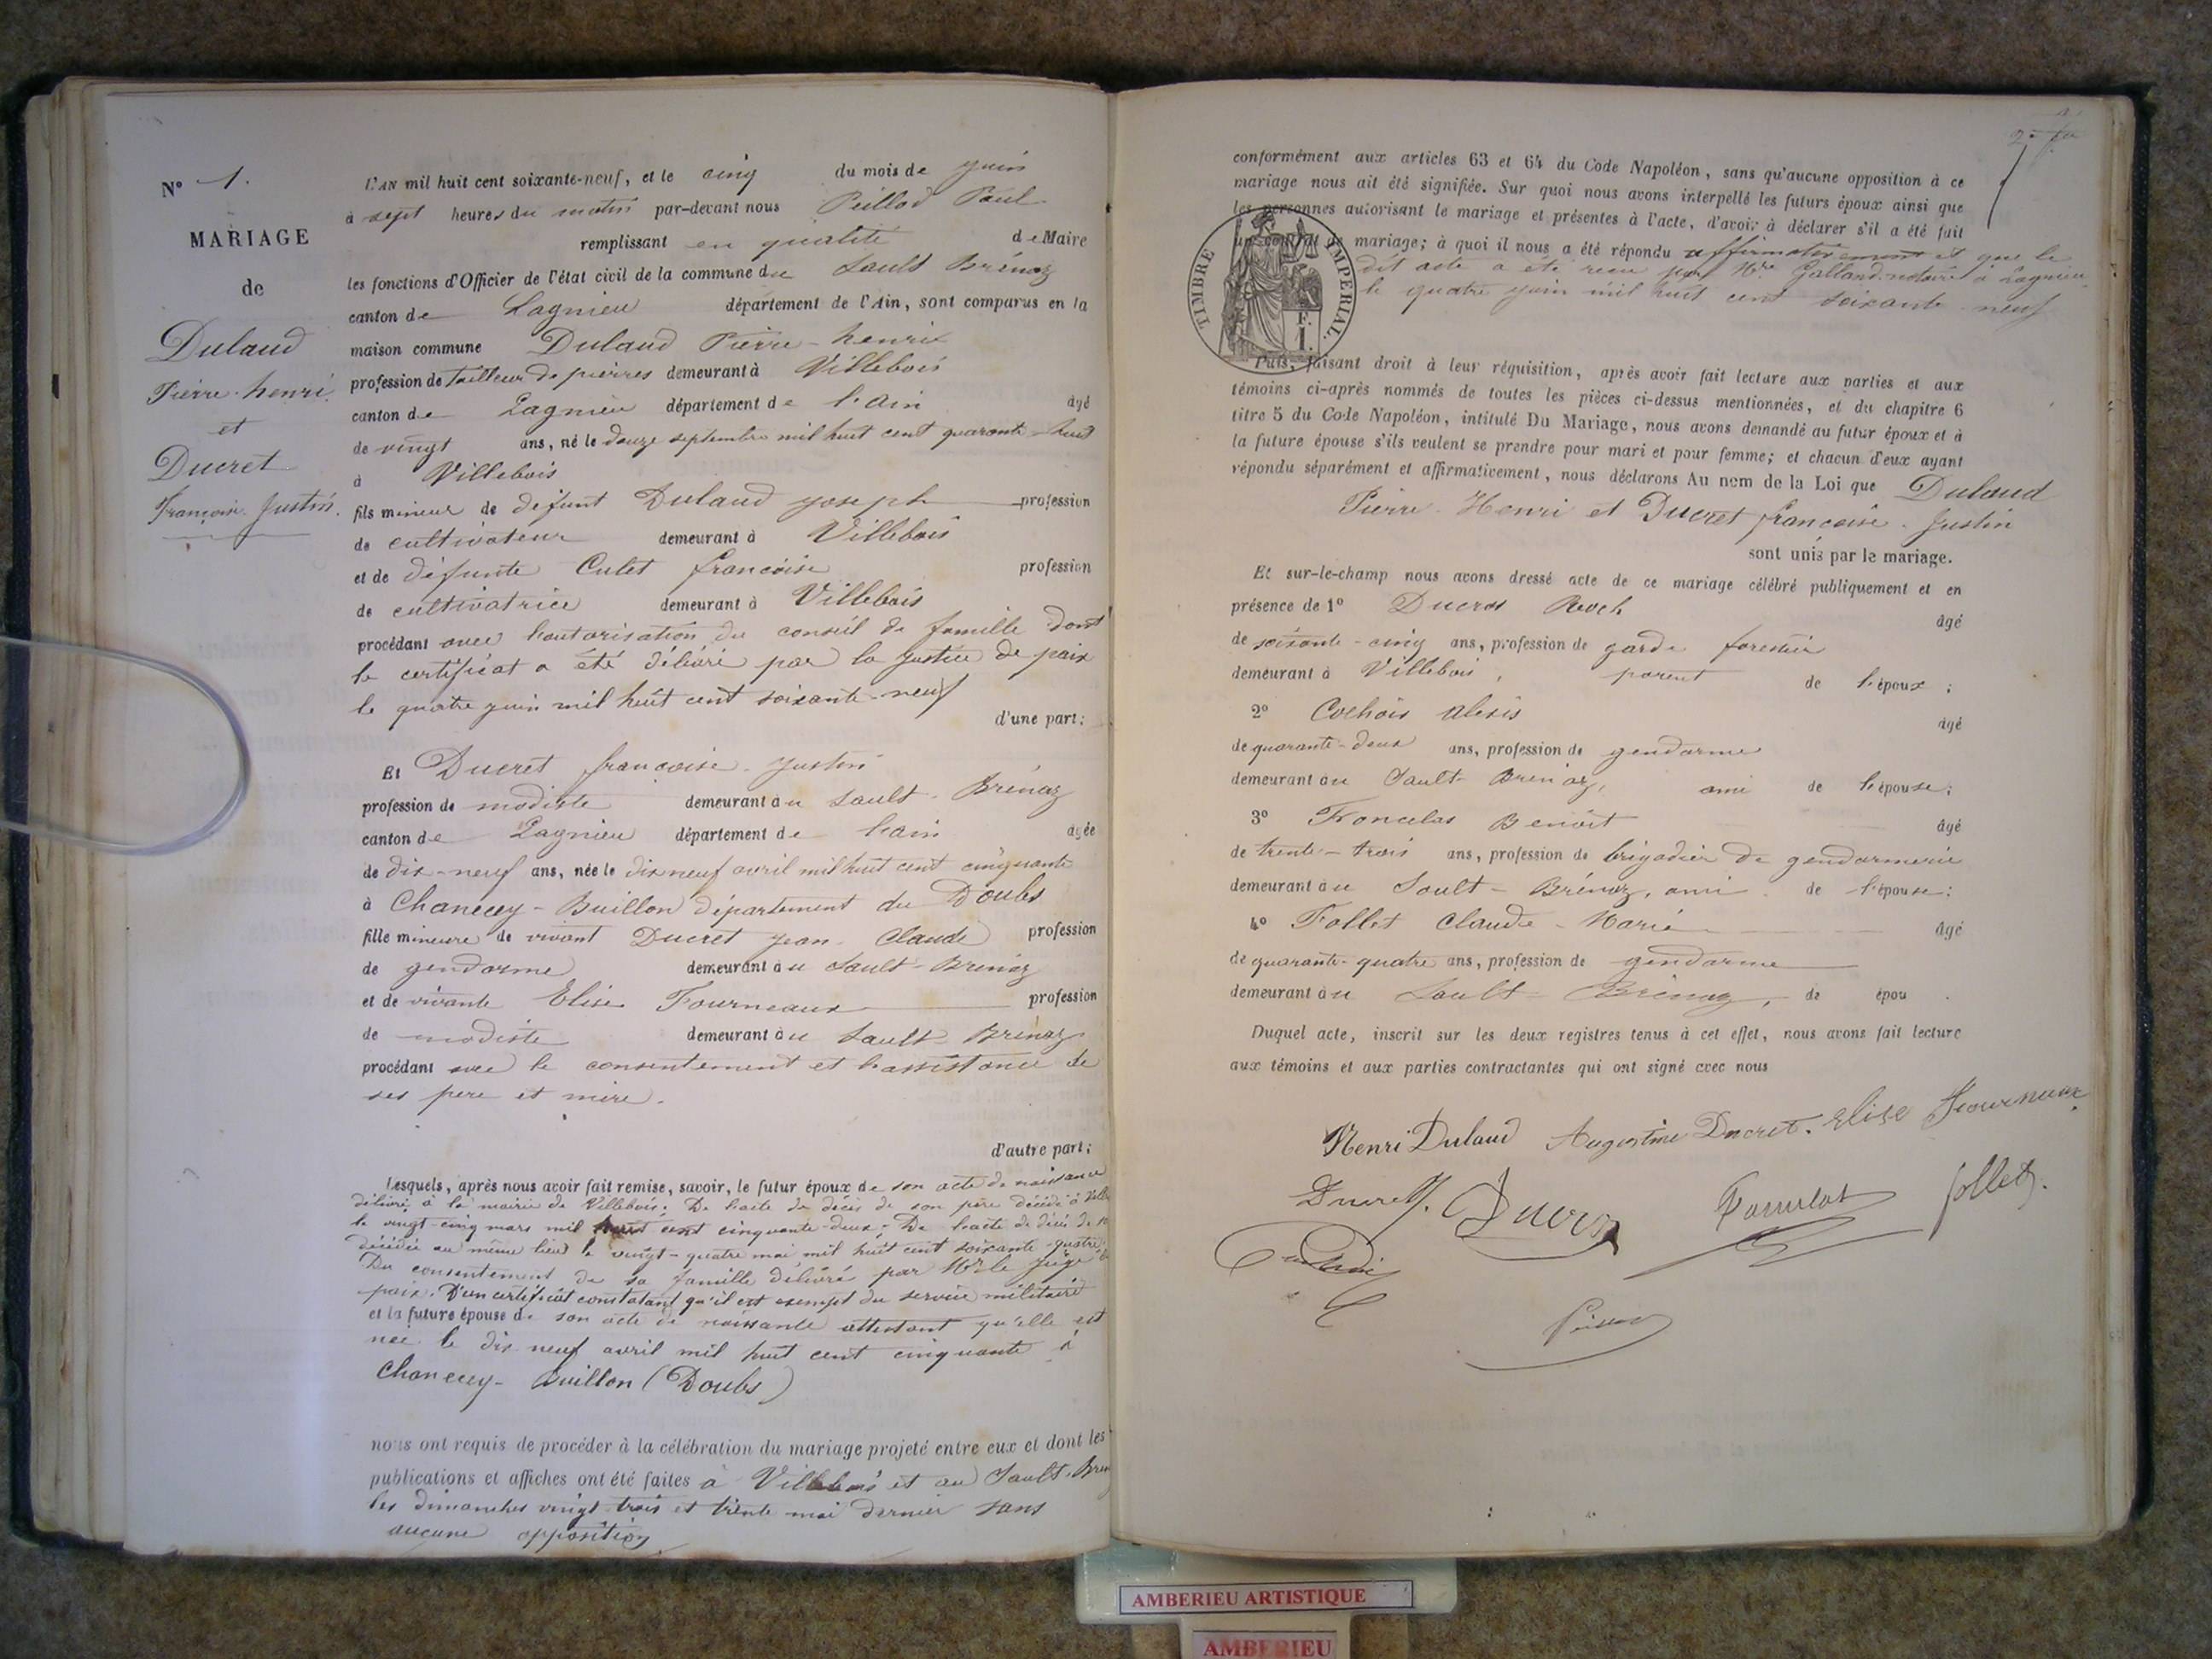 N° 1.
MARIAGE
de
Dulaud
Pierre-henri
et
Ducret
Françoise. Justin.
L'AN mil huit cent soixante-neuf, et le cinq du mois de juin
à sept heures du matin par-devant nous Peillod Paul
remplissant en qualité de Maire
les fonctions d'Officier de l'état civil de la commune du Sault Brénaz
canton de Lagnieu département de l'Ain, sont comparus en la
maison commune Dulaud Pierre-henri
profession de tailleur de pierres demeurant à Villebois
canton de Lagnieu département de l'ain âgé
de vingt ans, né le douze septembre mil huit cent quarante-huit
à Villebois
fils mineur de défunt Dulaud joseph profession
de cultivateur demeurant à Villebois
et de défunte Culet françoise profession
de cultivatrice demeurant à Villebois
procédant avec l'autorisation du conseil de famille dont
le certificat a été délivré par la justice de paix
le quatre juin mil huit cent soixante-neuf
d'une part;
Et Ducret françoise. justin
profession de modiste demeurant au Sault-Brénaz
canton de Lagnieu département de l'ain âgée
de dix-neuf ans, née le dix neuf avril mil huit cent cinquante
à Chanecey-Buillon département du Doubs
fille mineure de vivant Ducret jean-Claude profession
de gendarme demeurant au Sault-Brénaz
et de vivante Elise Fourneaux profession
de modiste demeurant au Sault Brénaz
procédant avec le consentement et l'assistance de
ses pere et mère.
d'autre part;
Lesquels, après nous avoir fait remise, savoir, le futur époux de son acte de naissance
délivré à la mairie de Villebois. De l'acte de décès de son père décédé à
le vingt-cinq mars mil huit cent cinquante-deux. De l'acte de décès de
décédée au même lieu le vingt-quatre mai mil huit cent soixante-quatre
Du consentement de sa famille délivré par Mr le juge de
paix. D'un certificat constatant qu'il est exempt du service militaire
et la future épouse de son acte de naissance attestant qu'elle est
née le dix neuf avril mil huit cent cinquante à
Chanecey-Buillon (Doubs)
nous ont requis de procéder à la célébration du mariage projeté entre eux et dont les
publications et affiches ont été faites à Villebois et au Sault. Bren
les dimanches vingt-trois et trente mai dernier sans
aucune opposition
conformément aux articles 63 et 64 du Code Napoléon, sans qu'aucune opposition à ce
mariage nous ait été signifiée. Sur quoi nous avons interpellé les futurs époux ainsi que
les personnes autorisant le mariage et présentes à l'acte, d'avoir à déclarer s'il a été fait
un contrat de mariage; à quoi il nous a été répondu affirmativement et que le
dit acte a été recu par Mre Galland notaire à Lagnieu
le quatre juin mil huit cent soixante-neuf
TIMBRE IMPERIAL.
F.
I.
Puis, faisant droit à leur réquisition, après avoir fait lecture aux parties et aux
témoins ci-après nommés de toutes les pièces ci-dessus mentionnées, et du chapitre 6
titre 5 du Code Napoléon, intitulé Du Mariage, nous avons demandé au futur époux et à
la future épouse s'ils veulent se prendre pour mari et pour femme; et chacun d'eux ayant
répondu séparément et affirmativement, nous déclarons Au nom de la Loi que Dulaud
Pierre-Henri et Ducret françoise. Justin
sont unis par le mariage.
Et sur-le-champ nous avons dressé acte de ce mariage célébré publiquement et en
présence de 1° Ducros Roch âgé
de soixante-cinq ans, profession de garde forestier
demeurant à Villebois, parent de l'époux;
2° Cochois alexis âgé
de quarante-deux ans, profession de gendarme
demeurant au Sault-Brénaz, ami de l'épouse;
3° Froncelas Benoît âgé
de trente-trois ans, profession de brigadier de gendarmerie
demeurant au Sault-Brénaz, ami de l'épouse;
4° Follet Claude-Marie âgé
de quarante-quatre ans, profession de gendarme
demeurant au Sault-Brénaz, de épou
Duquel acte, inscrit sur les deux registres tenus à cet effet, nous avons fait lecture
aux témoins et aux parties contractantes qui ont signé avec nous
Henri Dulaud Augustine Ducret. Elise Fourneaux
Ducret J. Ducros follet.
AMBERIEU ARTISTIQUE
AMBERIEU